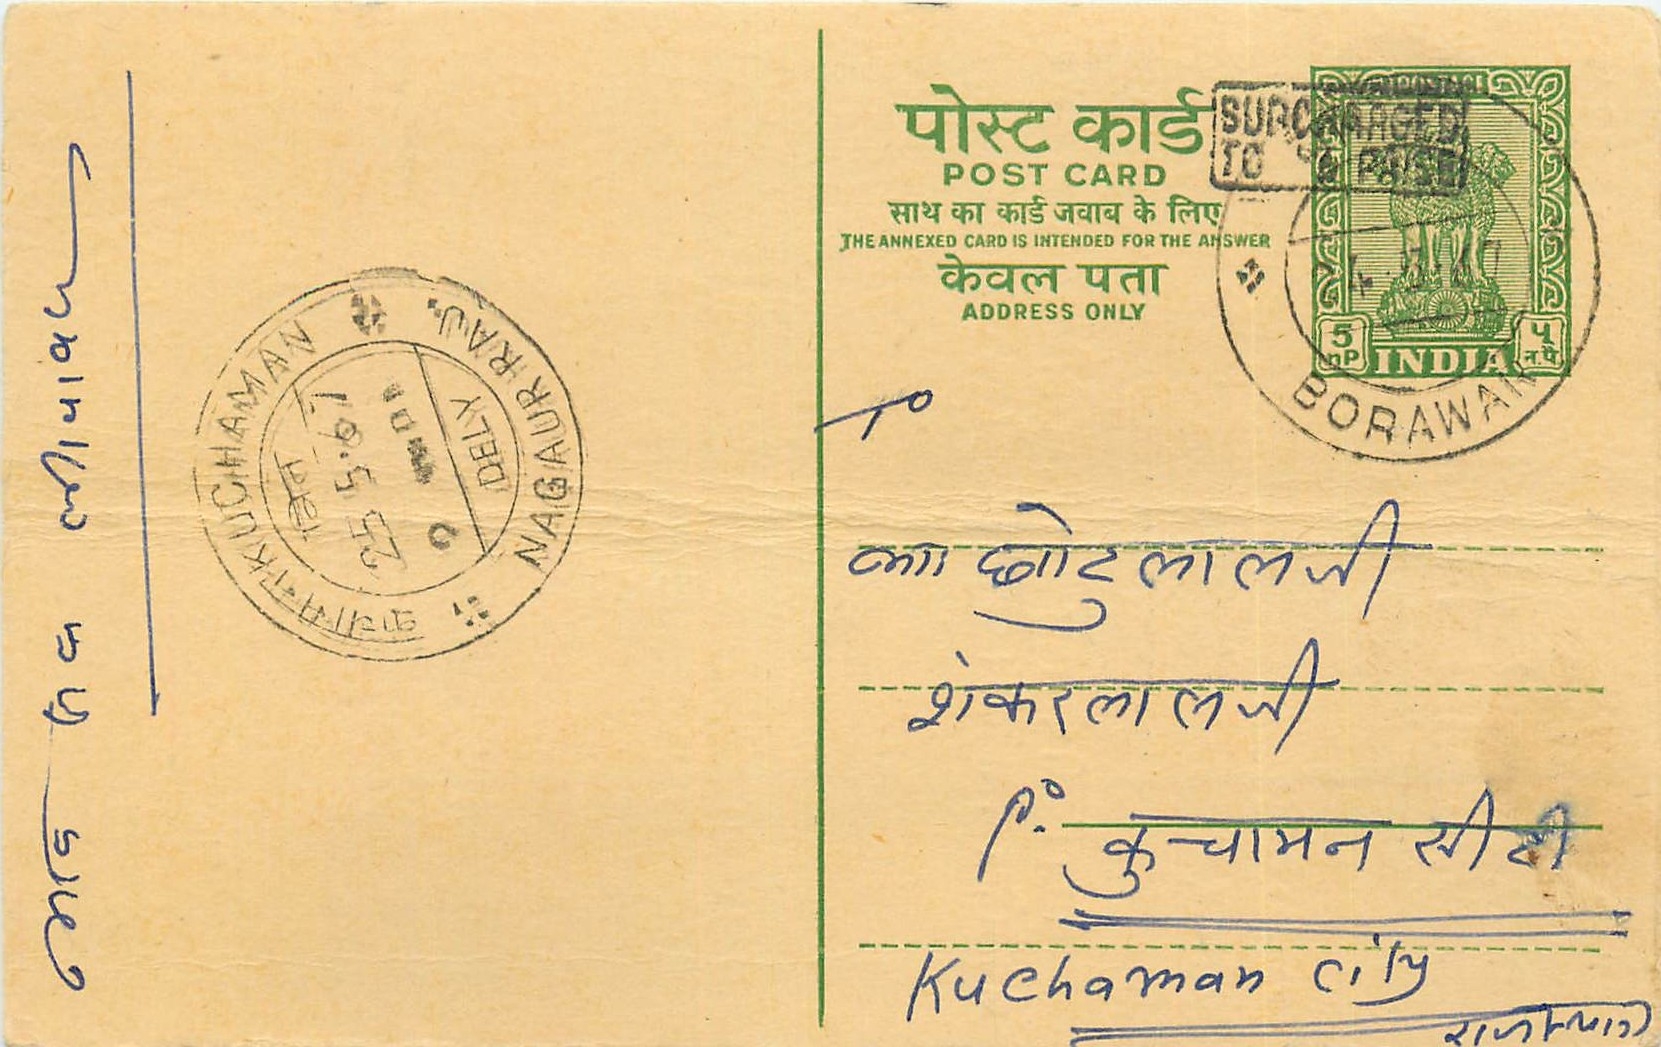 पोस्ट कार्ड
POST CARD
साथ का कार्ड जवाब के लिए
THE ANNEXED CARD IS INTENDED FOR THE ANSWER
केवल पता
ADDRESS ONLY
SURCHARGED
TO 6 PAISE
POSTAGE
5 nP
५ न.पै.
INDIA
BORAWAR
To
छोटुलालजी
शंकरलालजी
P.O. कुचामन सीटी
Kuchaman City
KUCHAMAN
NAGAUR RAJ.
DELY
25.5.67